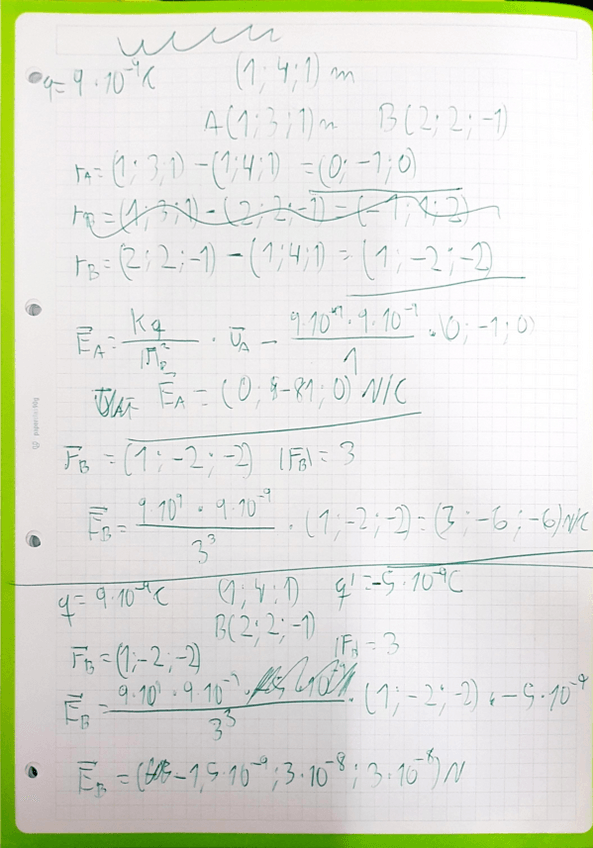 q= 9·10⁻⁹C (1; 4; 1) m
A(1; 3; 1) m B(2; 2; -1)
r_A= (1; 3; 1) - (1; 4; 1) = (0; -1; 0)
= (1; 3; 1) - (2; 2; -1) = (-1; 1; 2)
r_B= (2; 2; -1) - (1; 4; 1) = (1; -2; -2)
E_A= Kq / · U_A - 9·10⁹ · 9·10⁻⁹ / 1 · (0; -1; 0)
E_A = (0; -81; 0) N/C
r_B = (1; -2; -2) |r_B| = 3
E_B= 9·10⁹ · 9·10⁻⁹ / 3³ · (1; -2; -2) = (3; -6; -6) N/C
q= 9·10⁻⁹C (1; 4; 1) q' = -5·10⁻⁹C
B(2; 2; -1)
r_B = (1; -2; -2) = 3
E_B= 9·10⁹ · 9·10⁻⁹ / 3³ · (1; -2; -2) · -5·10⁻⁹
E_B = (-1,5·10⁻⁹; 3·10⁻⁸; 3·10⁻⁸) N